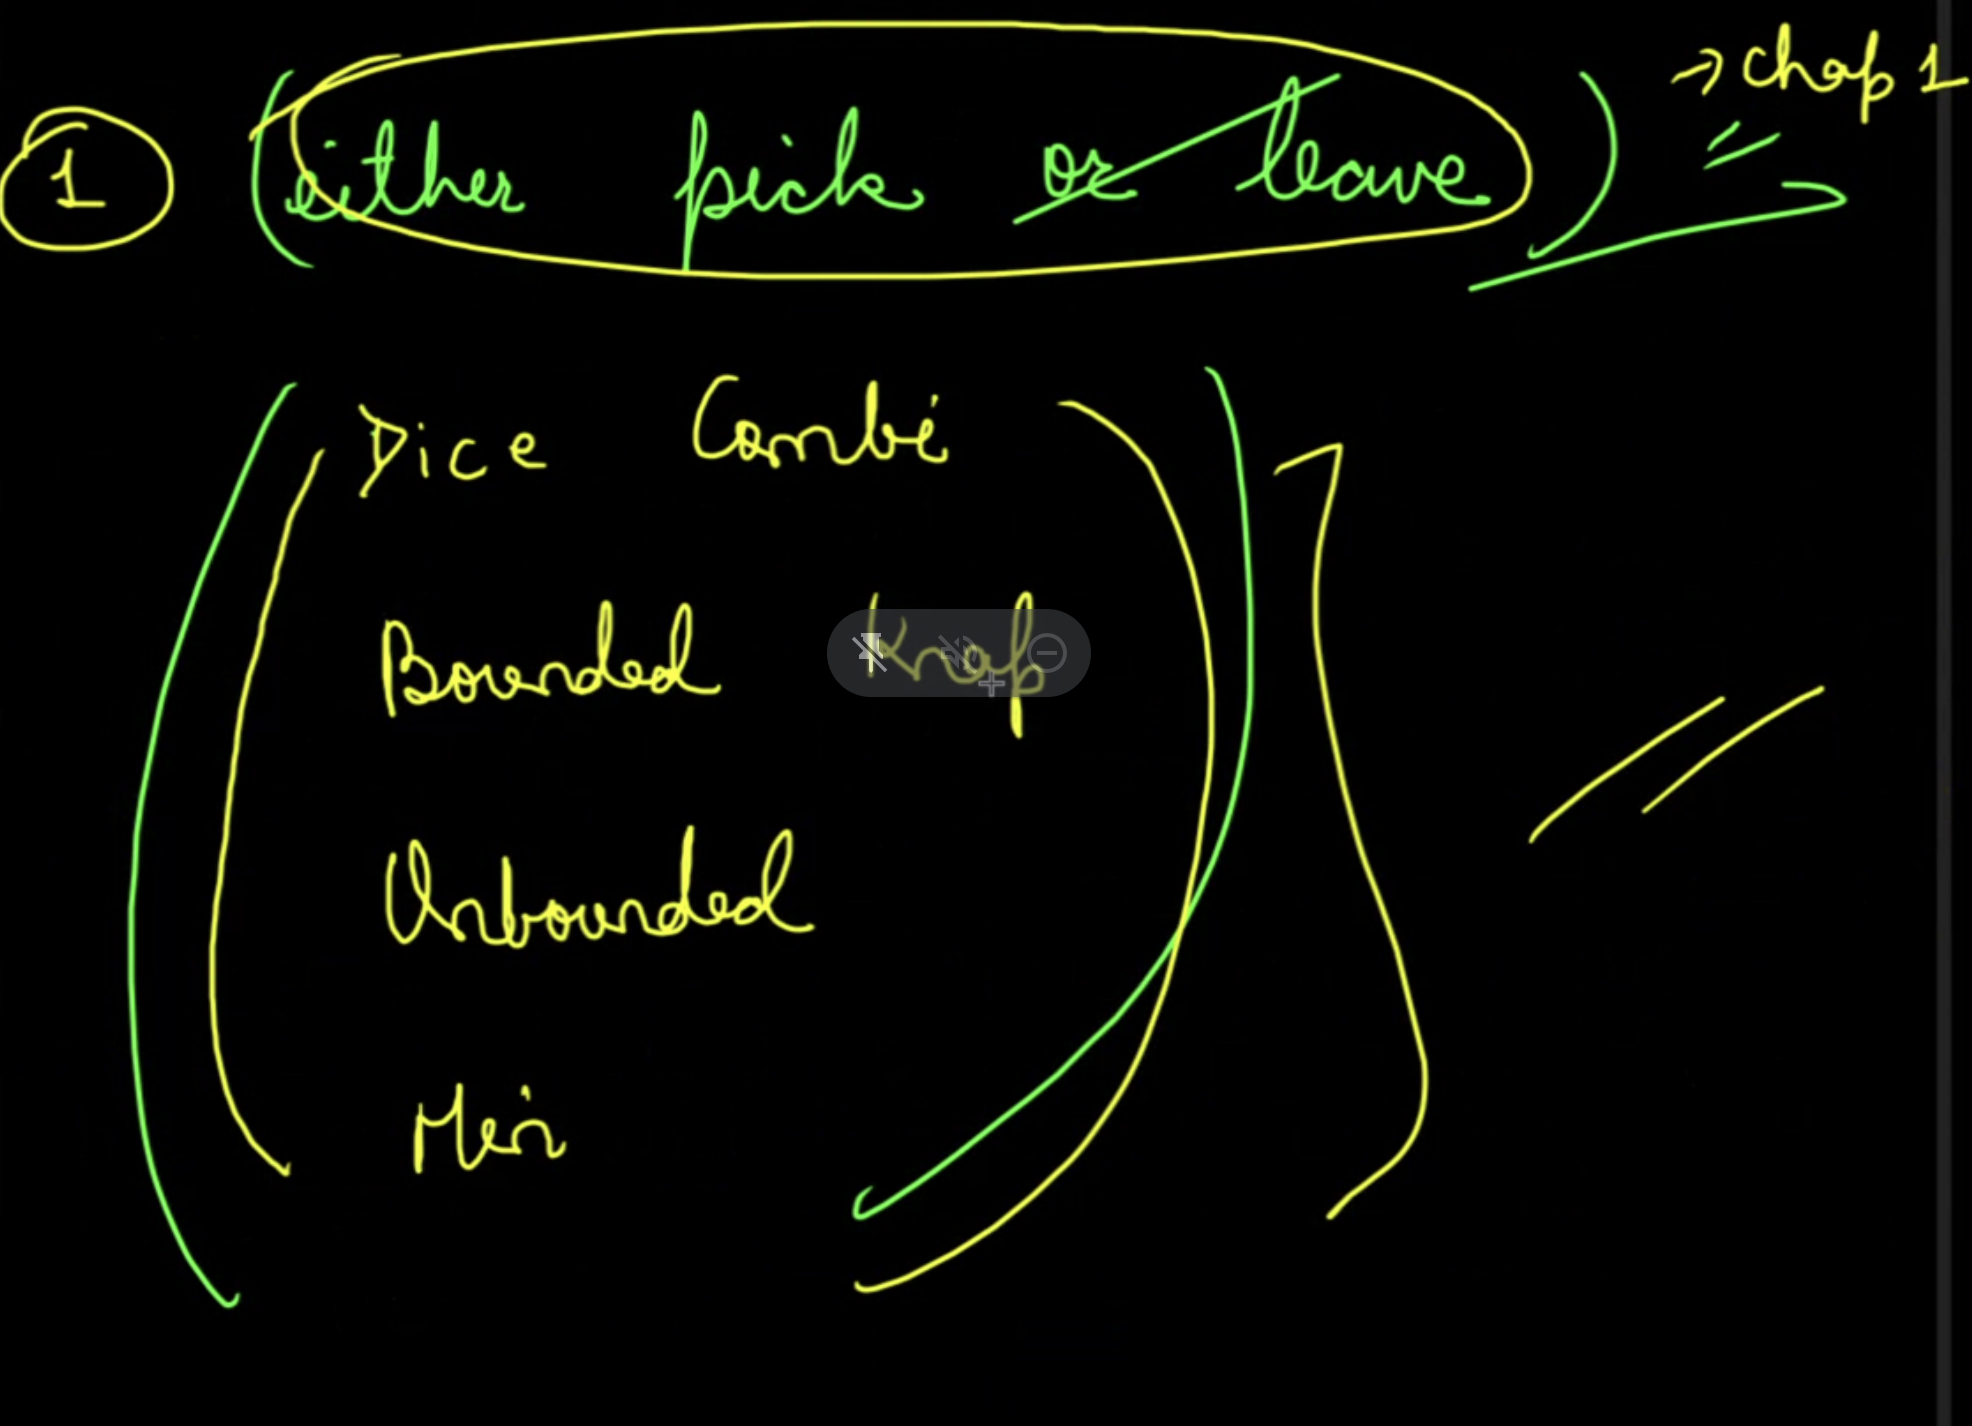 1 (either pick or leave) → chap 1
Dice Combi
Bounded Knap
Unbounded
Min